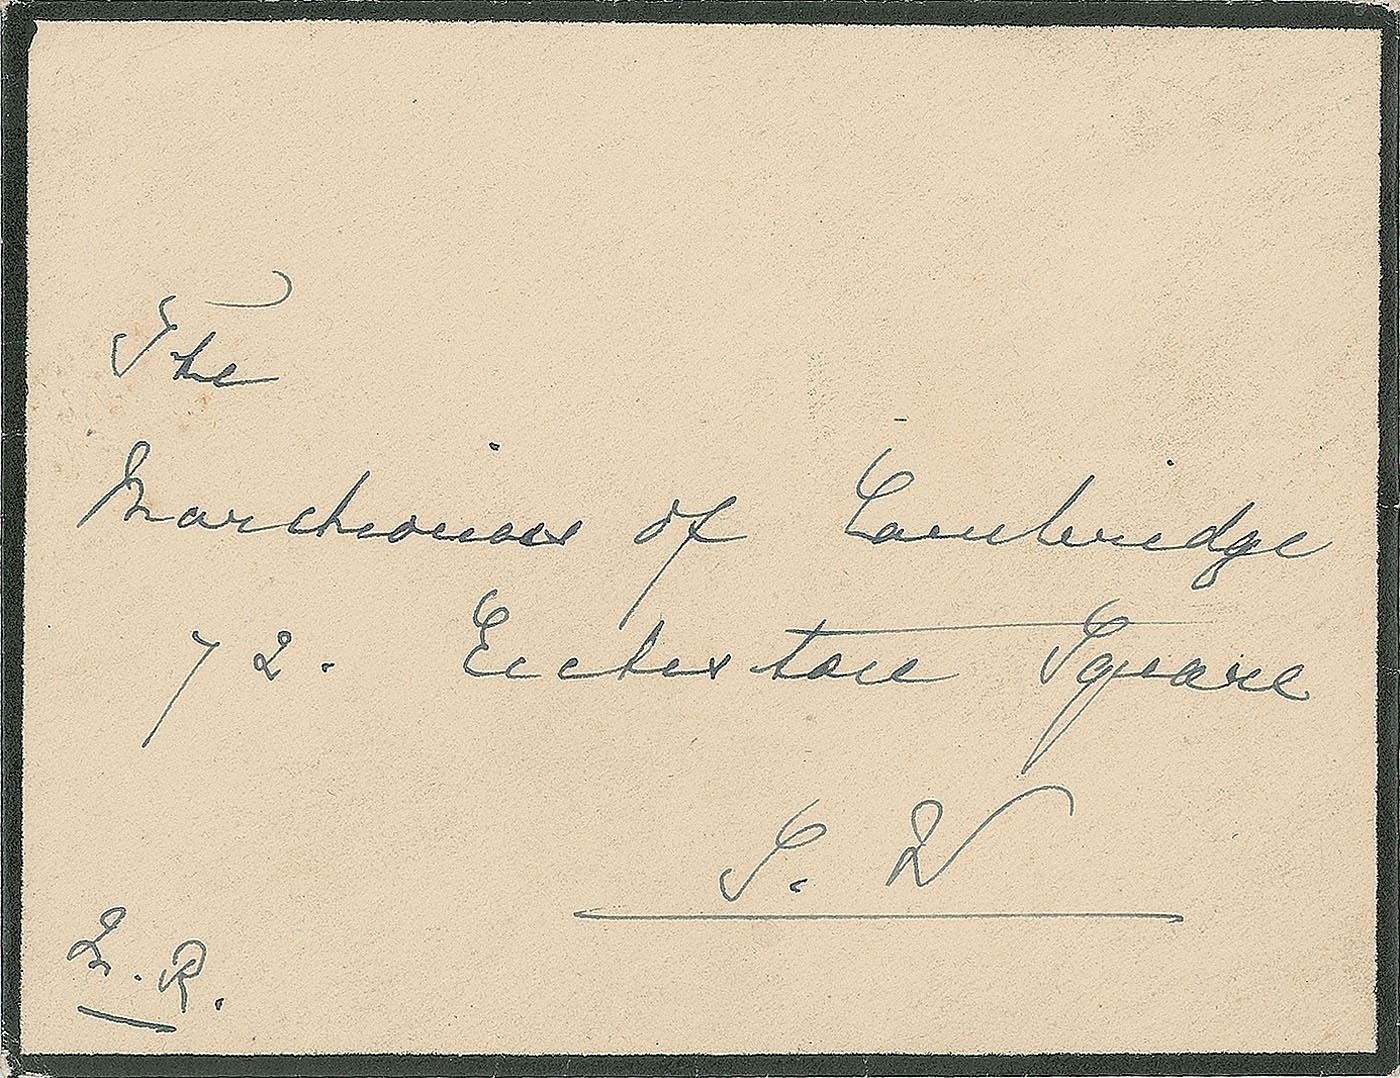 The
Marchioness of Cambridge
72. Eccleston Square
S. W
M. R.